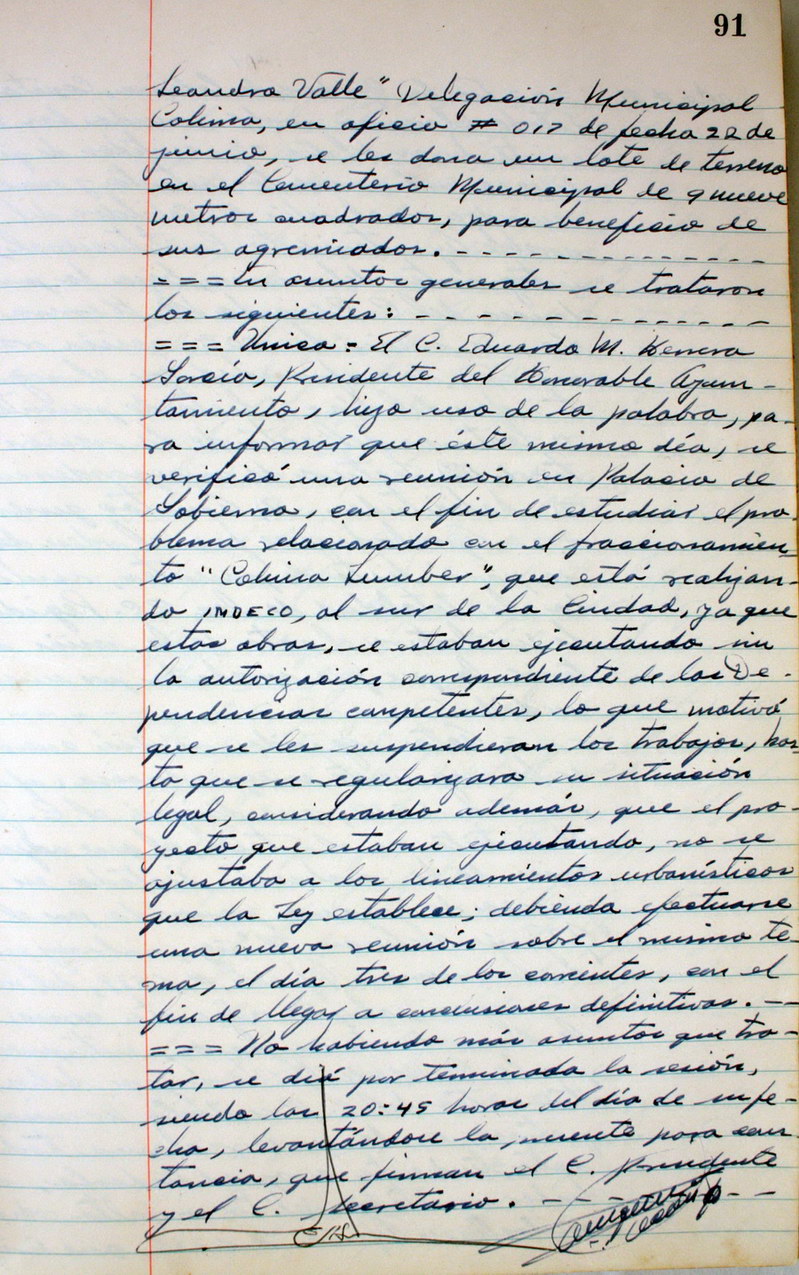 91
Leandro Valle" Delegación Municipal
Colima, en oficio # 017 de fecha 22 de
junio, se les dona un lote de terreno
en el Cementerio Municipal de 9 nueve
metros cuadrados, para beneficio de
sus agremiados. - - - - - - - - - - - - - -
= = = En asuntos generales se trataron
los siguientes: - - - - - - - - - - - - - -
= = = Unico - El C. Eduardo M. Herrera
García, Presidente del Honorable Ayun-
tamiento, hizo uso de la palabra, pa-
ra informar que éste mismo día, se
verificó una reunión en Palacio de
Gobierno, con el fin de estudiar el pro-
blema relacionado con el fraccionamien-
to "Colima Lumber", que está realizan-
do INDECO, al sur de la Ciudad, ya que
estas obras, se estaban ejecutando sin
la autorización correspondiente de las De-
pendencias competentes, lo que motivó
que se les suspendieran los trabajos, has-
ta que se regularizara su situación
legal, considerando además, que el pro-
yecto que estaban ejecutando, no se
ajustaba a los lineamientos urbanísticos
que la Ley establece; debiendo efectuarse
una nueva reunión sobre el mismo te-
ma, el día tres de los corrientes, con el
fin de llegar a conclusiones definitivas. - -
= = = No habiendo más asuntos que tra-
tar, se dió por terminada la sesión,
siendo las 20:45 horas del día de su fe-
cha, levantándose la presente para cons-
tancia, que firman el C. Presidente
y el C. Secretario. - - - - - - - -